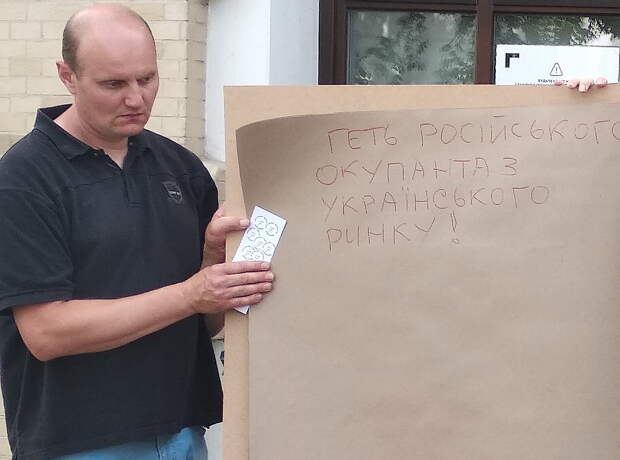 ГЕТЬ РОСІЙСЬКОГО
ОКУПАНТА З
УКРАЇНСЬКОГО
РИНКУ!